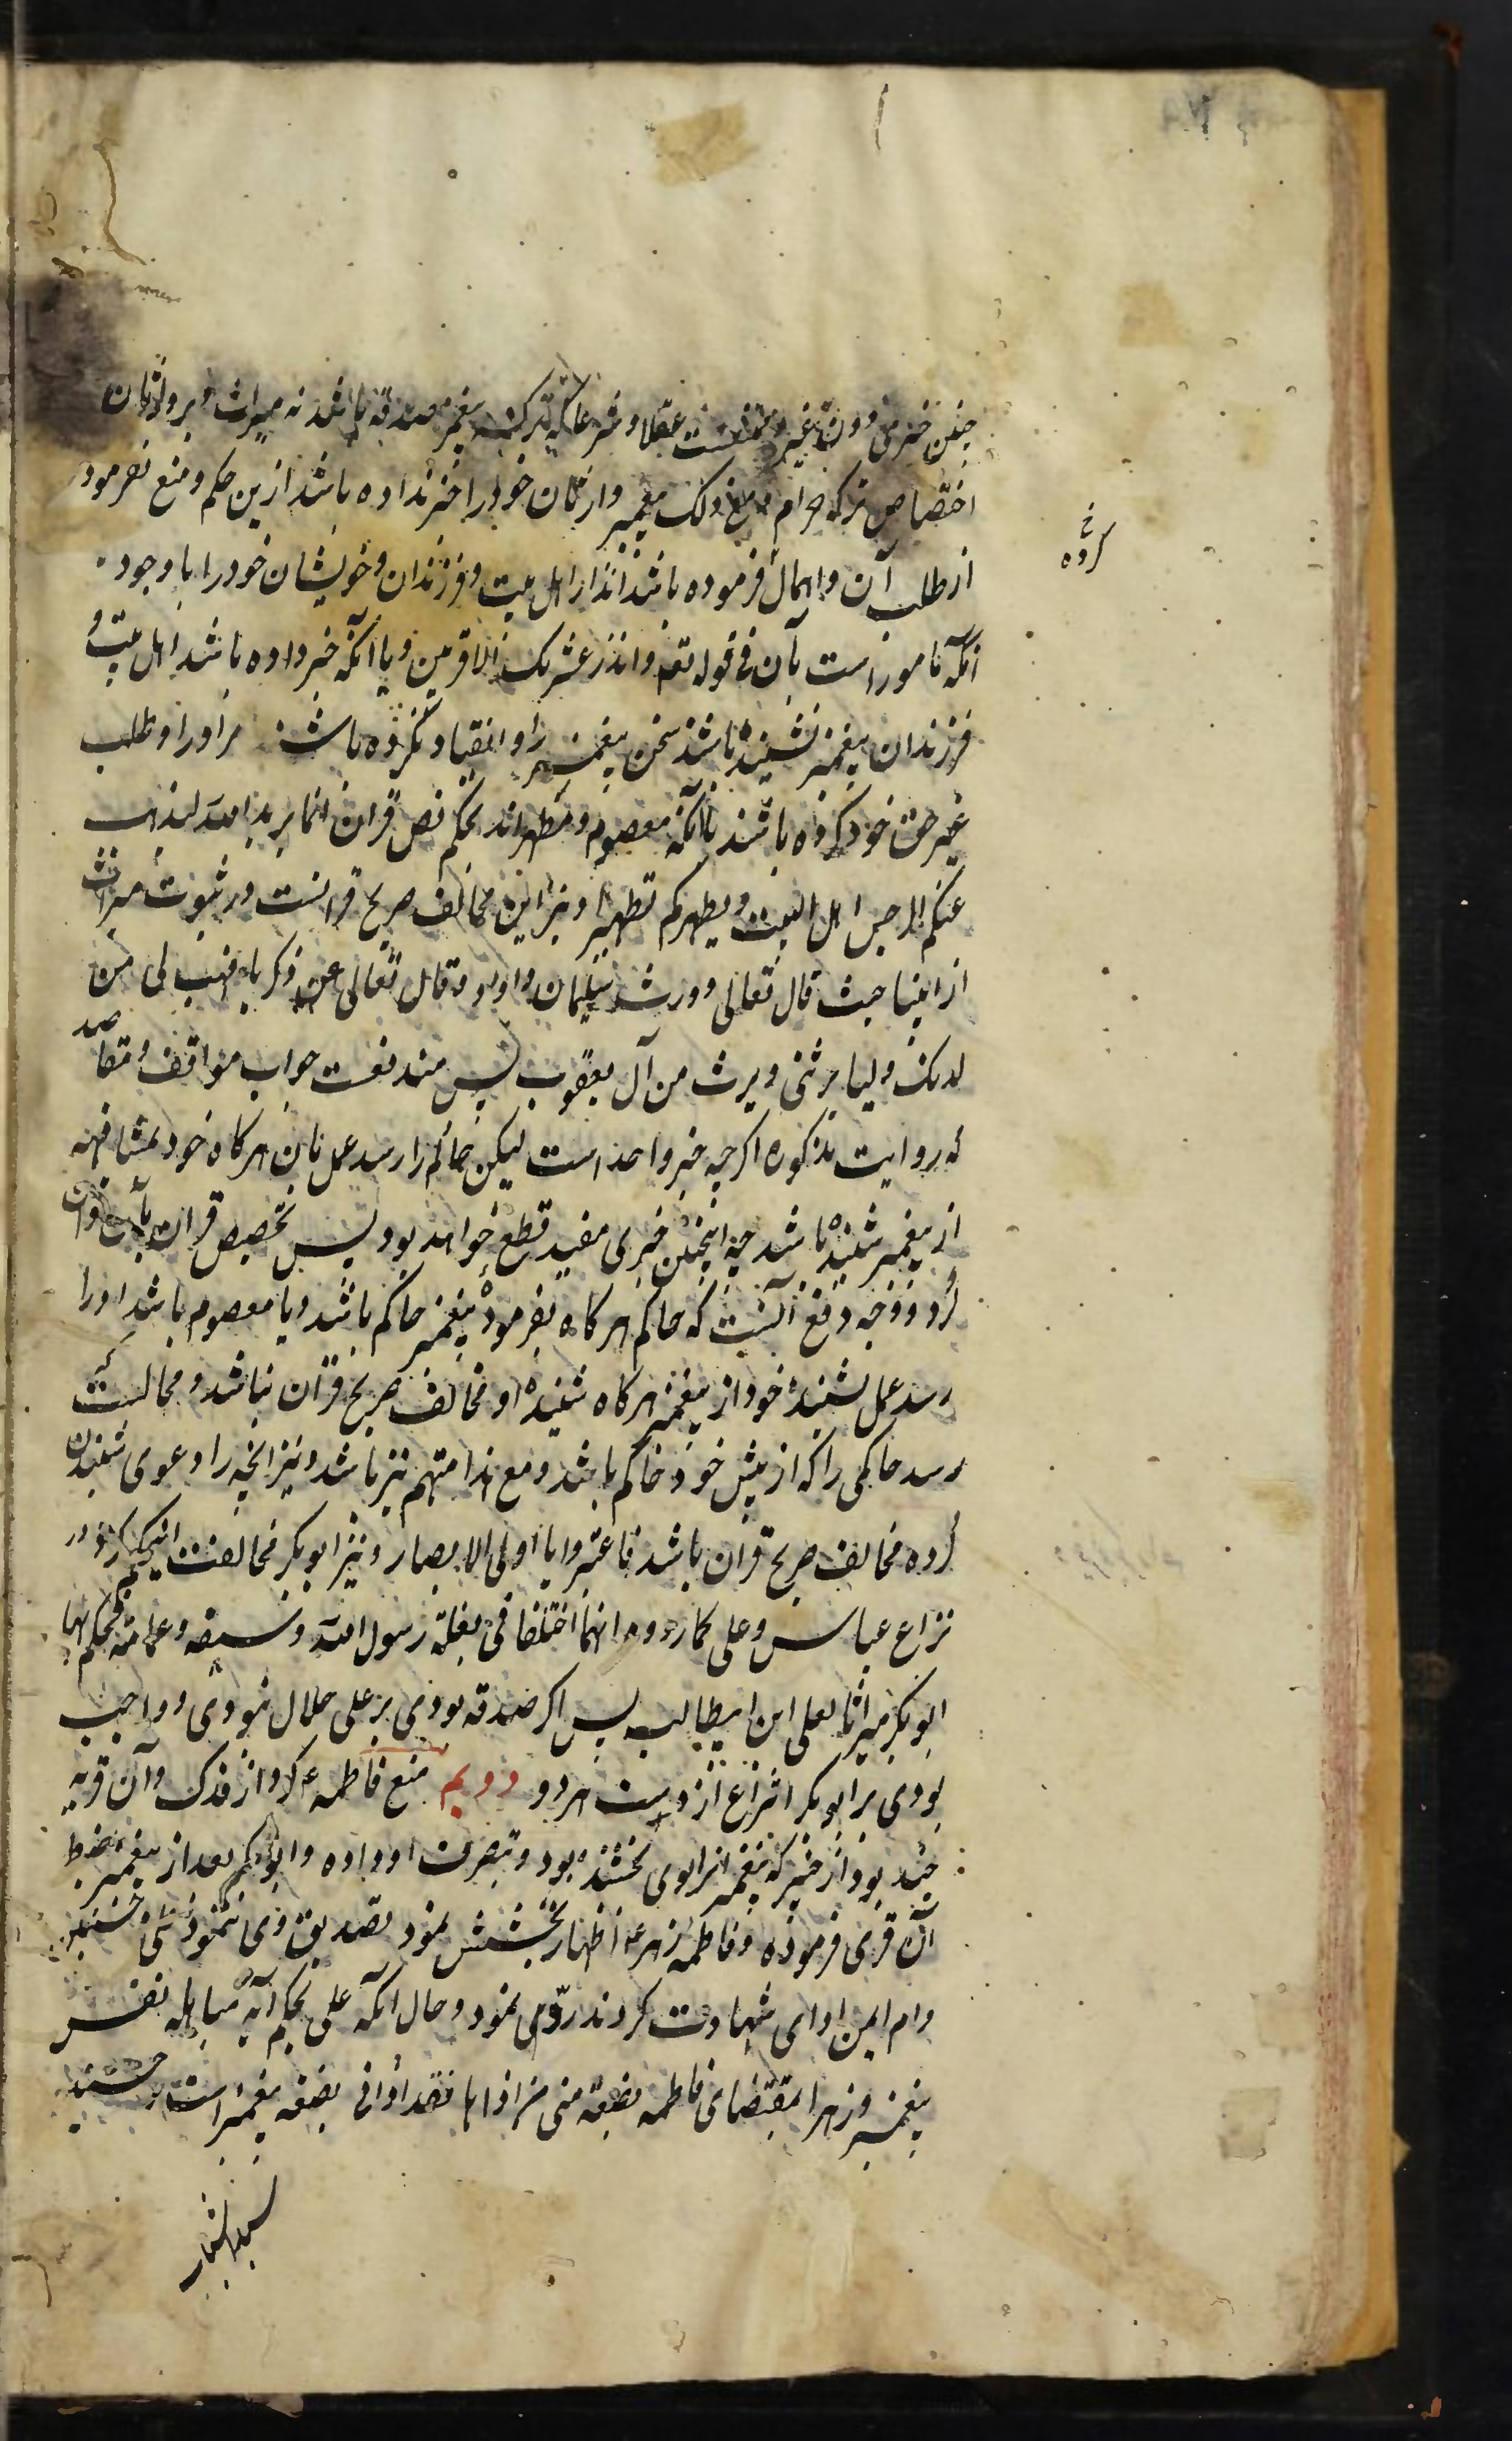 چنین خبری دون غیره ممتنعست عقلا و شرعا که ترکه پیغمبر صدقه باشد نه میراث و بر وارثان
اختصاص ترکه حرام و مع ذلک پیغمبر وارثان خود را خبر نداده باشد ازین حکم و منع نفرموده
از طلب آن و اهمال فرموده باشد انذار اهل بیت و فرزندان و خویشان خود را با وجود
آنکه مامور است بآن فی قوله تعه وانذر عشیرتک الاقربین و یا آنکه خبر داده باشد اهل بیت و
فرزندان پیغمبر نشینده باشند سخن پیغمبر را و انقیاد نکرده باشند مر او را و طلب
غیر حق خود کرده باشند با آنکه معصوم و مطهراند بحکم نص قران انما یرید الله لیذهب
عنکم الرجس اهل البیت و یطهرکم تطهیرا و نیز این مخالف صریح قرانست در ثبوت میراث
از انبیا حیث قال تعالی وورث سلیمان داود و قال تعالی عن زکریا فهب لی من
لدنک ولیا یرثنی و یرث من آل یعقوب پس مندفعست جواب مواقف و مقاصد
که روایت مذکوره اگرچه خبر واحد است لیکن حاکم را رسد عمل بآن هرکاه خود بمشافهه
از پیغمبر شنیده باشد چه اینچنین خبری مفید قطع خواهد بود پس تخصیص قران بآن توان
کرد و وجه دفع آنست که حاکم هرکاه بفرمودهٔ پیغمبر حاکم باشد و یا معصوم باشد او را
رسد عمل بشنیدهٔ خود از پیغمبر هرکاه شنیدهٔ او مخالف صریح قرآن نباشد و محالست که
رسد حاکمی را که از پیش خود حاکم باشد و مع هذا متهم نیز باشد و نیز آنچه را دعوی شنیدن
کرده مخالف صریح قران باشد فاعتبروا یا اولی الابصار و نیز ابوبکر مخالفت اینحکم کرد در
نزاع عباس و علی کما رووه انهما اختلفا فی بغلة رسول الله و سیفه و عمامته فحکم بها
ابوبکر میراثا لعلی ابن ابیطالب پس اکر صدقه بودی بر علی حلال نبودی و واجب
بودی بر ابوبکر انتزاع از دست هر دو دویم منع فاطمه ع کرد از فدک و آن قریه
چند بود از خیبر که پیغمبر انرا بوی بخشیده بود و بتصرف او داده و ابوبکر بعد از پیغمبر ضبط
آن قری فرموده و فاطمه زهرا ع اظهار بخشش نمود تصدیق وی ننمود علی و حسنین
و ام ایمن ادای شهادت کردند رد وی نمود و حال آنکه علی بحکم آیه مباهله نفس
پیغمبر و زهرا بمقتضای فاطمه بضعة منی من اذاها فقد اذانی بضعه پیغمبر است و حسنین
کرده خ